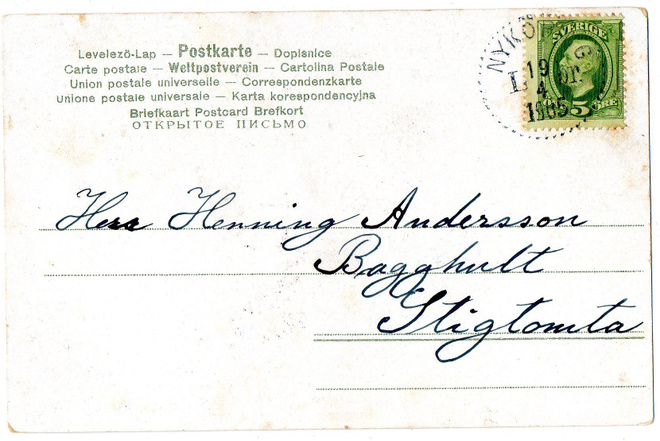 Levelező-Lap — Postkarte — Dopisnice
Carte postale — Weltpostverein — Cartolina Postale
Union postale universelle — Correspondenzkarte
Unione postale universale — Karta korespondencyjna
Briefkaart Postcard Brefkort
ОТКРЫТОЕ ПИСЬМО
SVERIGE
5 ÖRE
19
4
1905
Herr Henning Andersson
Bagghult
Stigtomta